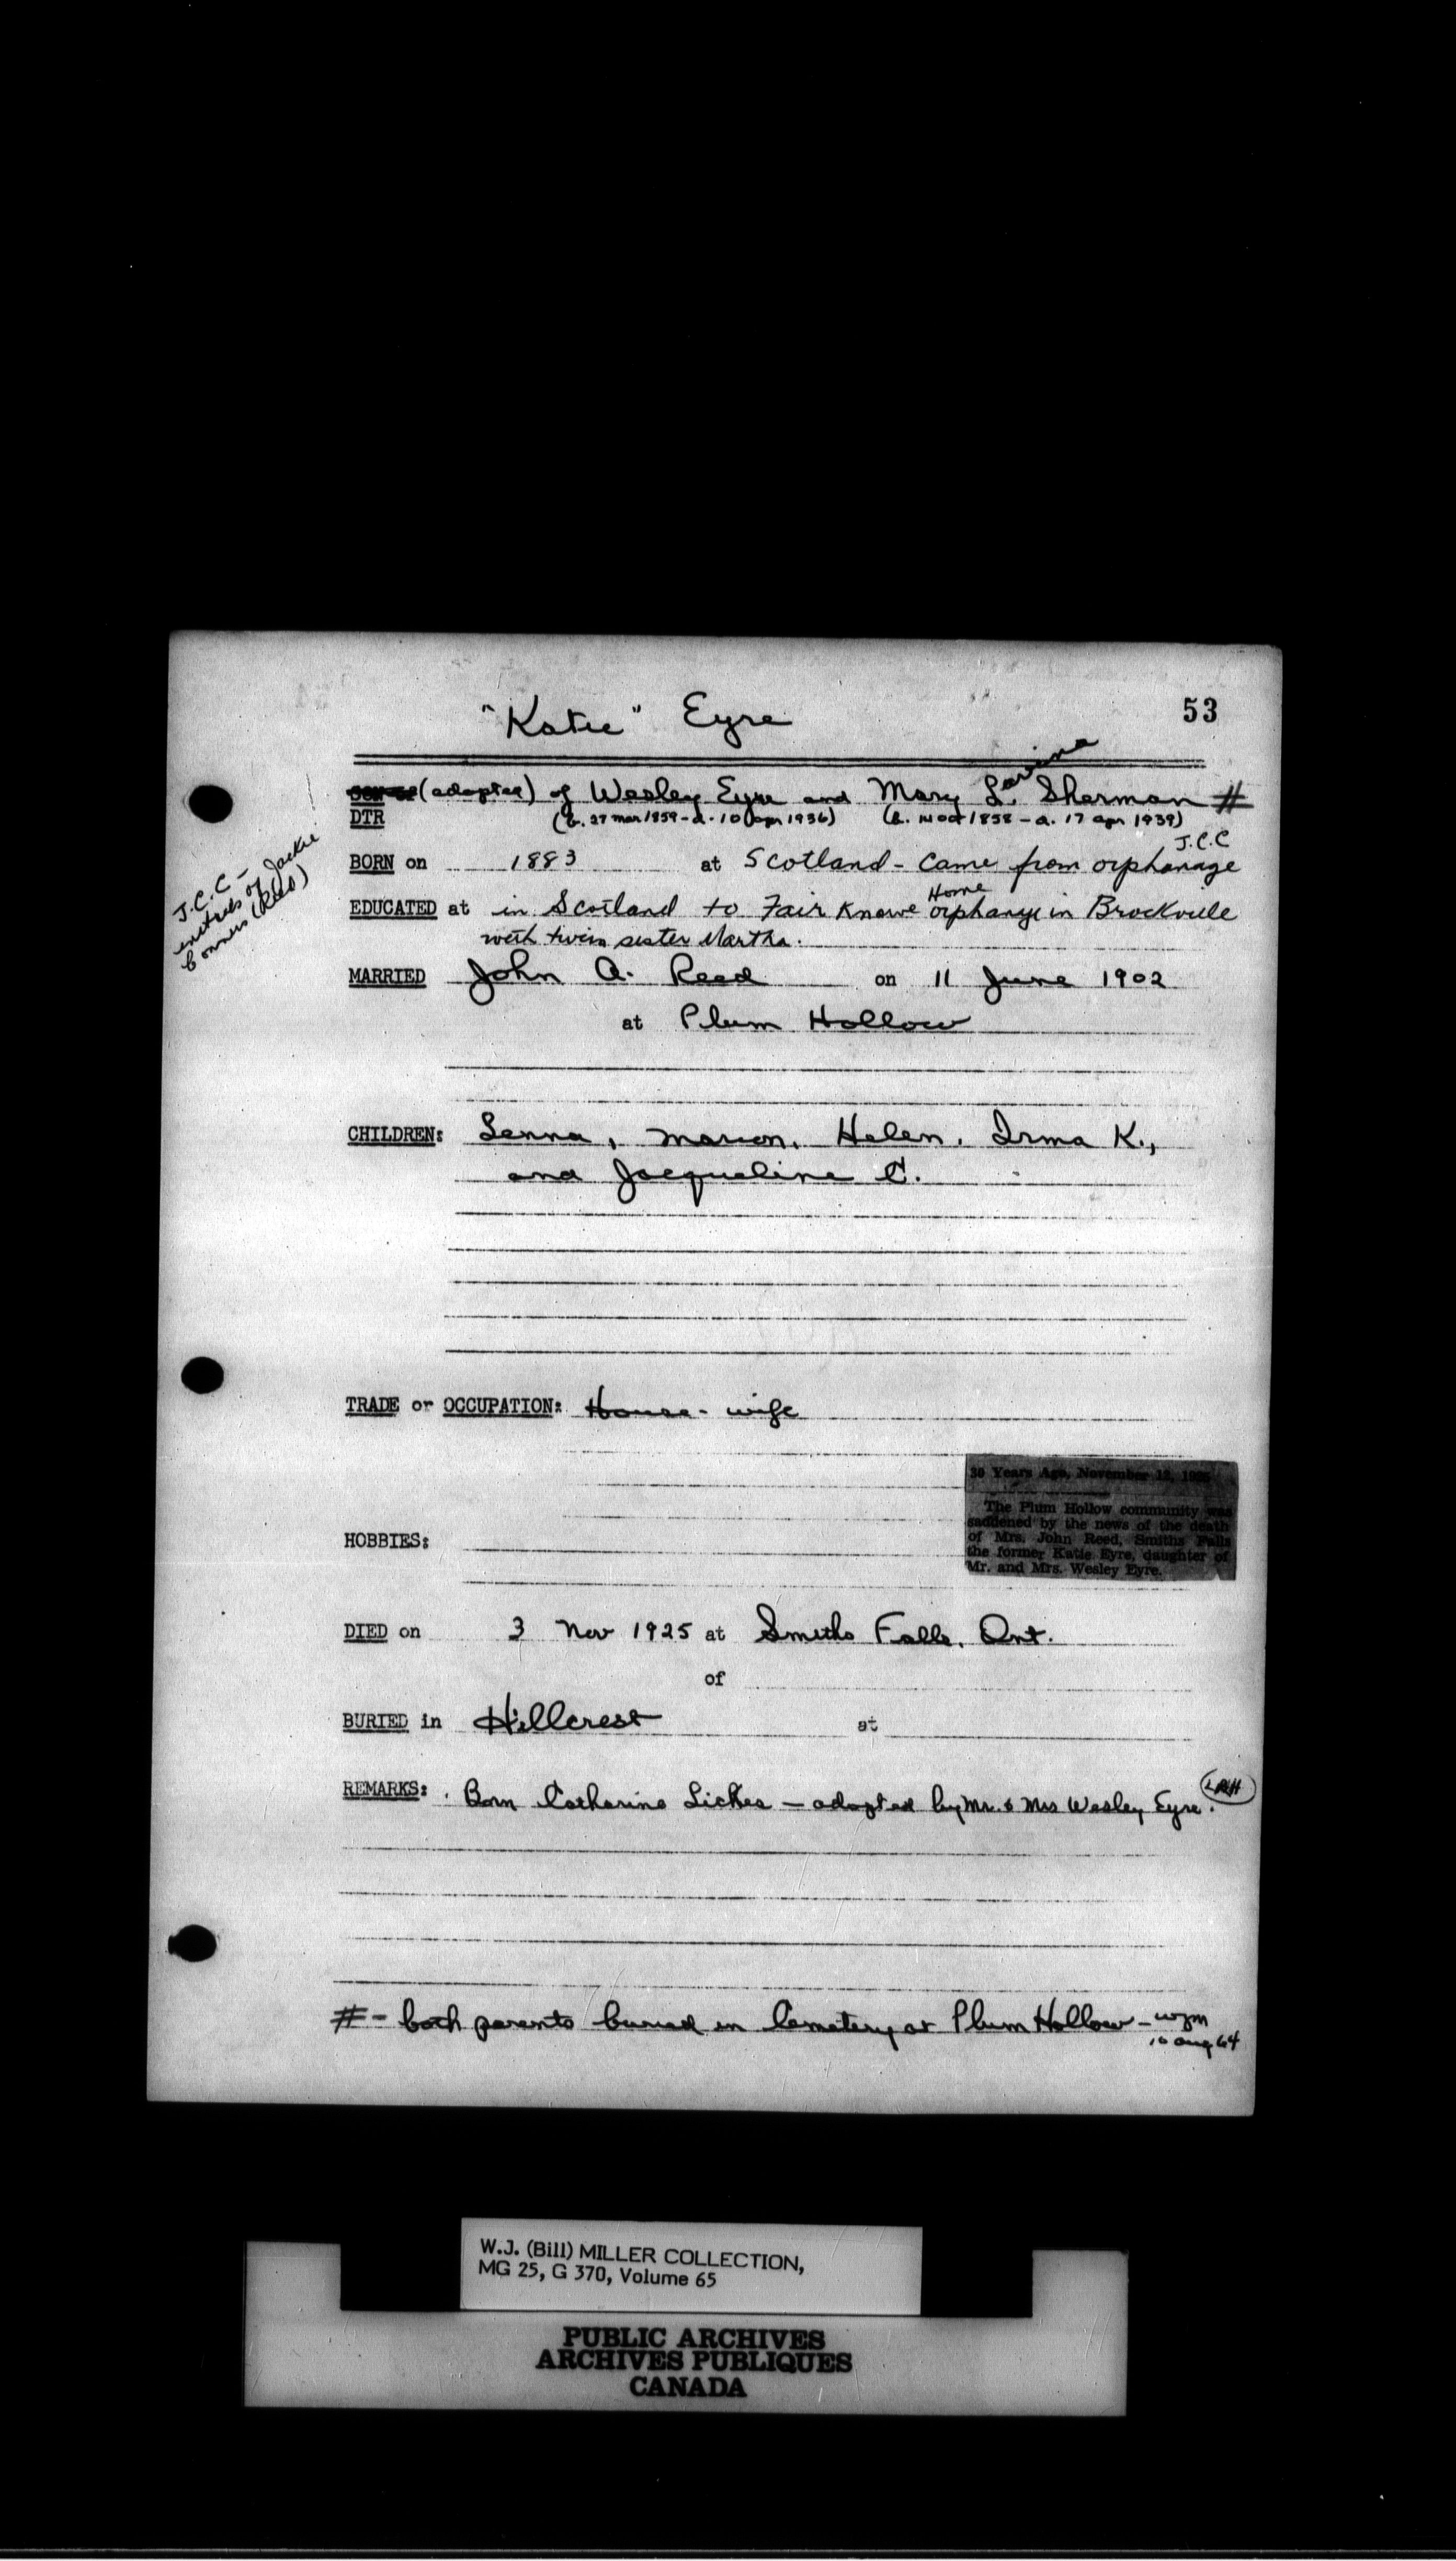 "Katie" Eyre
53
Lavina
SON of (adopted) of Wesley Eyre and Mary L. Sherman #
DTR (b. 27 mar 1859 - d. 10 apr 1936) (b. 14 oct 1858 - d. 17 apr 1939)
J.C.C
BORN on 1883 at Scotland - came from orphanage
Home
EDUCATED at in Scotland to Fair Knowe orphange in Brockville
with twin sister Martha.
J.C.C -
initials of Jackie
Conners (Reed)
MARRIED John A. Reed on 11 June 1902
at Plum Hollow
CHILDREN: Lenna, Marion, Helen, Irma K.,
and Jacqueline C.
TRADE or OCCUPATION: House-wife
30 Years Ago, November 12, 1925
The Plum Hollow community was
saddened by the news of the death
of Mrs. John Reed, Smiths Falls
the former Katie Eyre, daughter of
Mr. and Mrs. Wesley Eyre.
HOBBIES:
DIED on 3 Nov 1925 at Smiths Falls, Ont.
of
BURIED in Hillcrest at
REMARKS: Born Catharine - adopted by Mr. & Mrs Wesley Eyre.
# - both parents buried in Cemetery at Plum Hollow - wjm
10 aug 64
W.J. (Bill) MILLER COLLECTION,
MG 25, G 370, Volume 65
PUBLIC ARCHIVES
ARCHIVES PUBLIQUES
CANADA